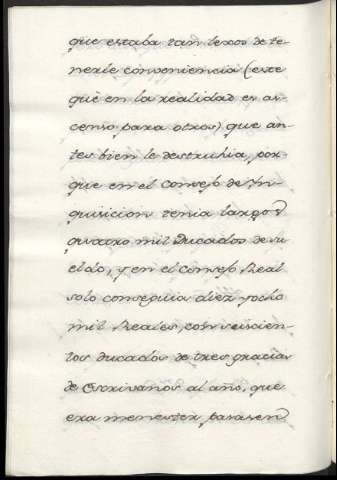 que estaba tan lexos de te-
nerle conveniencia (este
que en la realidad es as-
censo para otros) que an-
tes bien le destruhia, por-
que en el Consejo de In-
quisicion tenia largos
quatro mil Ducados de su
eldo, y en el Consejo Real
solo conseguia diez y ocho
mil Reales, con seiscien-
tos ducados de tres gracias
de Escrivanos al año, que
era menester para